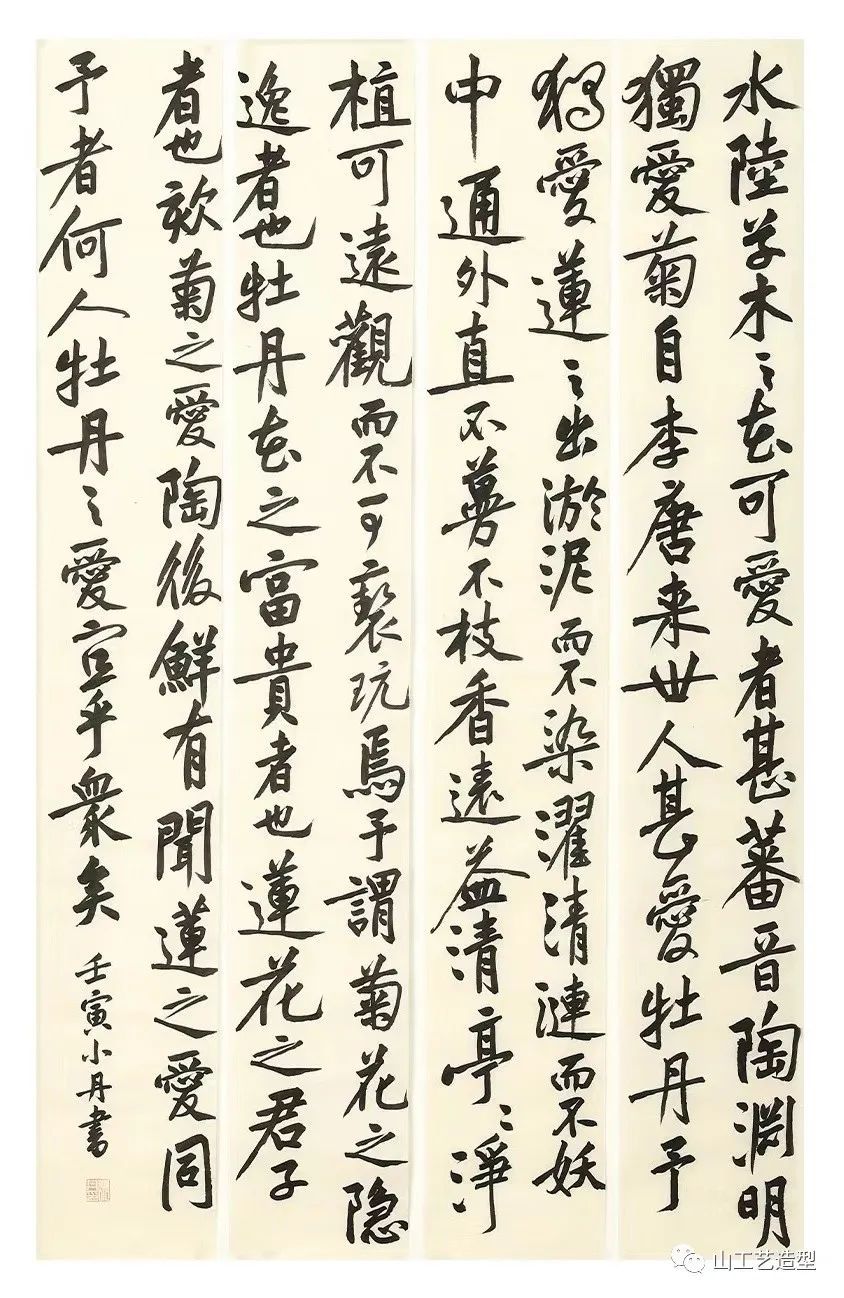 水陸草木之花可愛者甚蕃晉陶渊明
獨愛菊自李唐来世人甚愛牡丹予
獨愛蓮之出淤泥而不染濯清漣而不妖
中通外直不蔓不枝香遠益清亭〻淨
植可遠觀而不可褻玩焉予謂菊花之隐
逸者也牡丹花之富貴者也蓮花之君子
者也欬菊之愛陶後鮮有聞蓮之愛同
予者何人牡丹之愛宜乎衆矣
壬寅小丹書
山工艺造型